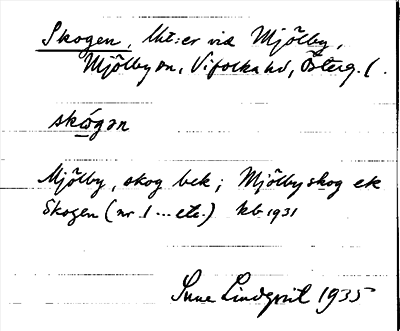 Skogen, Mt:er vid Mjölby,
Mjölby sn, Vifolka hd, Österg. l.
skógən
Mjölby, skog bek; Mjölbyskog ek
Skogen (nr 1 ... etc.) kb 1931
Sune Lindqvist 1935